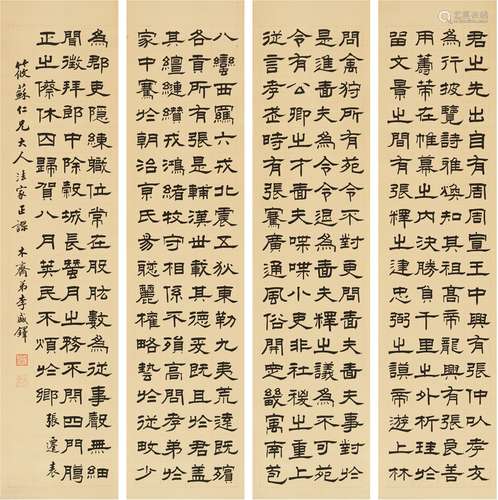 君之先出自周周宣王中興有張仲以孝友
為行披覽詩雅煥知其祖高帝龍興有張良善
用籌策在帷幕之內決勝負千里之外析珪於
留文景之間有張釋之建忠弼之謨帝游上林
問禽狩所有苑令不對更問嗇夫嗇夫事對於
是進嗇夫為令令退為嗇夫釋之議為不可苑
令有公卿之才嗇夫喋喋小吏非社稷之重上
從言孝武時有張騫廣通風俗開定畿寓南苞
八蠻西羈六戎北震五狄東勤九夷荒遠既殯
各貢所有張是輔漢世載其德爰既且於君蓋
其纏縺纘戎鴻緒牧守相係不殞高問孝弟於
家中謇於朝治京氏易聰麗權略藝於從畋少
為郡吏隱練職位常在股肱數為從事聲無細
聞徵拜郎中除穀城長蠶月之務不閉四門臘
正之僚休囚歸賀八月算民不煩於鄉 張遷表
筱蘇仁兄大人法家正謬 木齋弟李盛鐸